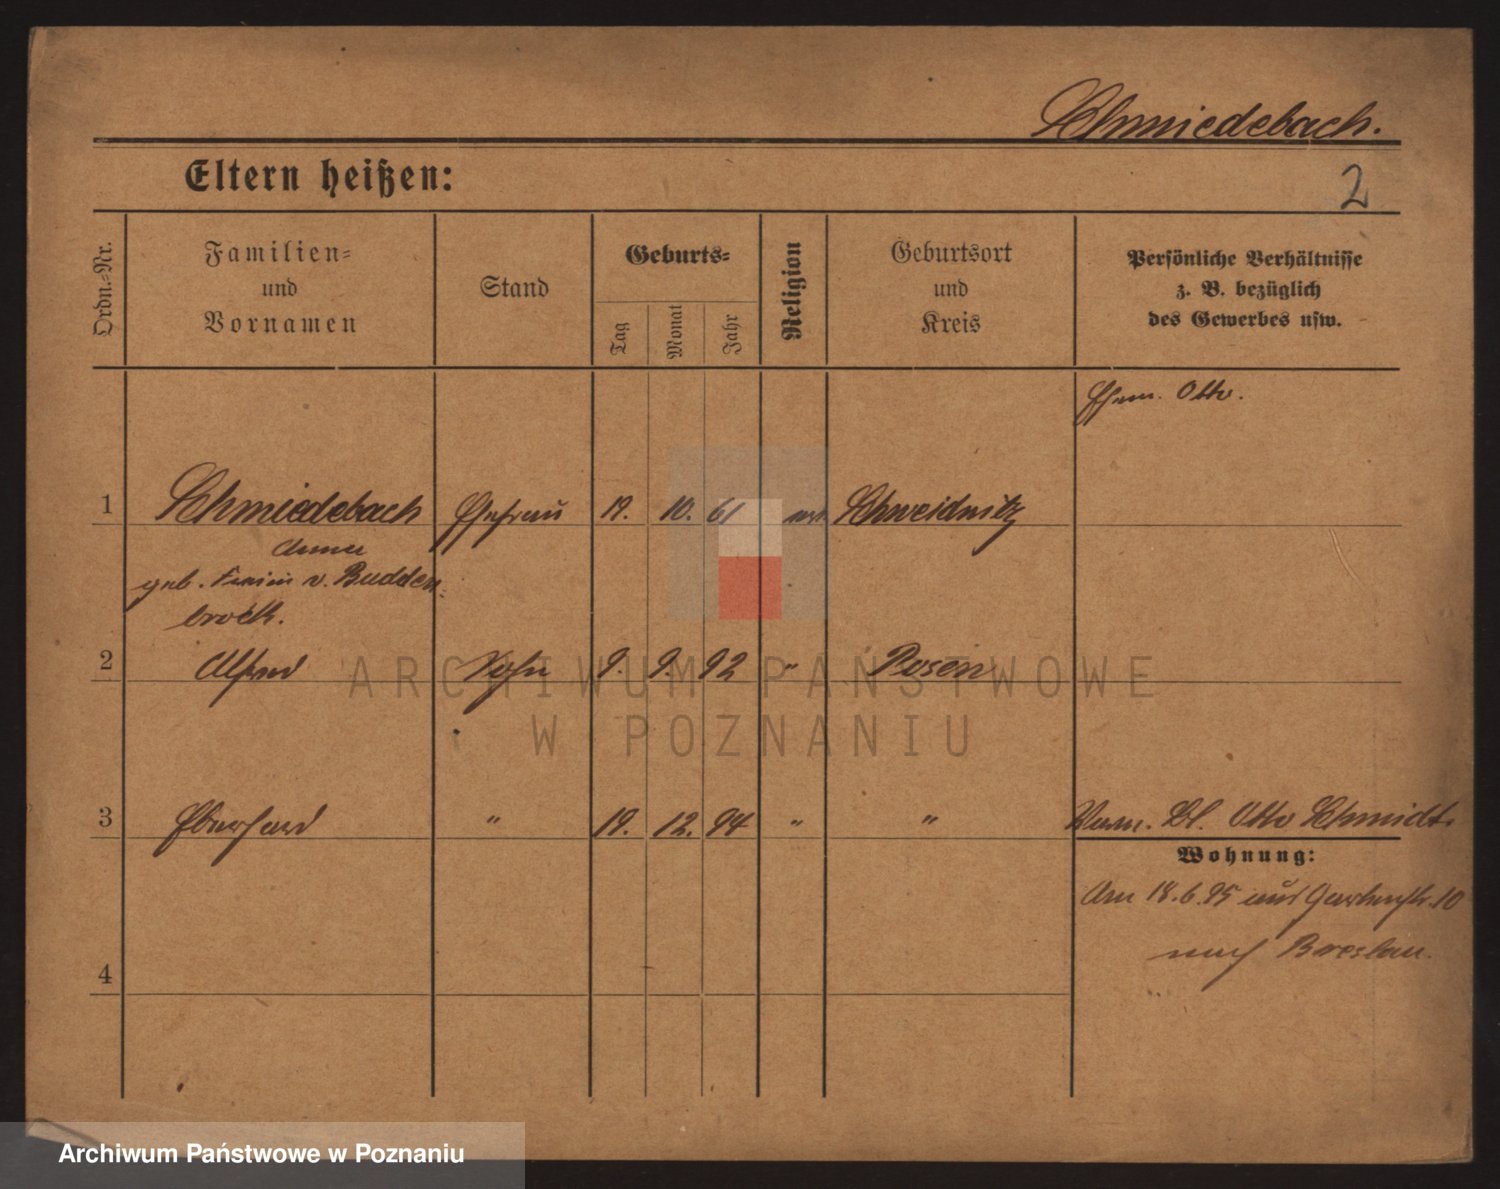 Schmiedebach.
Eltern heißen:
2
Ordn.=Nr.
Familien=
und
Vornamen
Stand
Geburts=
Tag
Monat
Jahr
Religion
Geburtsort
und
Kreis
Persönliche Verhältnisse
z. B. bezüglich
des Gewerbes usw.
Ehem. Otto.
1 Schmiedebach Ehefrau 19. 10. 61 Schweidnitz
Anna
geb. v. Budden
brock.
2 Alfred Sohn 9. 9. 92 " Posen
3 Eberhard " 19. 12. 94 " " Otto Schmidt.
Wohnung:
Am 18.6.95 aus Gartenstr. 10
nach Breslau.
4
ARCHIWUM PAŃSTWOWE
W POZNANIU
Archiwum Państwowe w Poznaniu